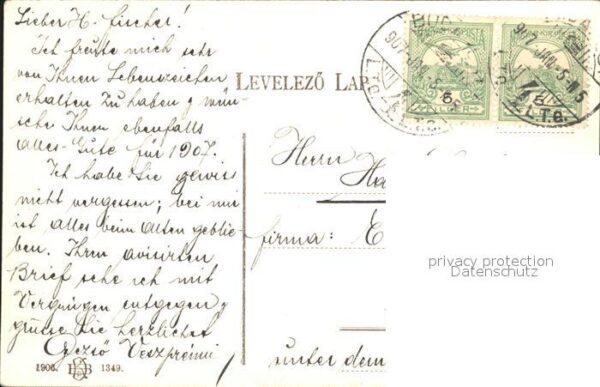 Lieber H. Fischer!
Ich freute mich sehr
von Ihnen Lebenszeichen
erhalten zu haben, wün-
sche Ihnen ebenfalls
alles Gute für 1907.
Ich habe Sie gewiss
nicht vergessen; bei mir
ist alles beim Alten geblie-
ben. Ihren avisirten
Brief sehe ich mit
Vergnügen entgegen,
grüsse Sie herzlichst
Dezső Veszprémi
1906. 1349.
LEVELEZŐ LAP
Herrn
Ha
firma: E
unter dem
privacy protection
Datenschutz